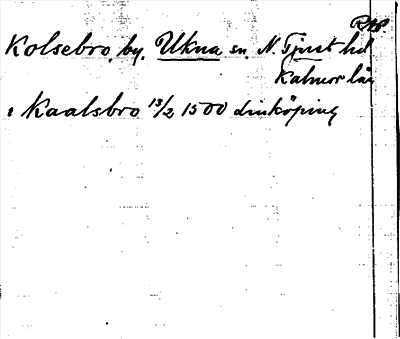 RAP.
Kolsebro, by. Ukna sn. N. Tjust hd
Kalmar län
i Kaalsbro 13/2 1500 Linköping